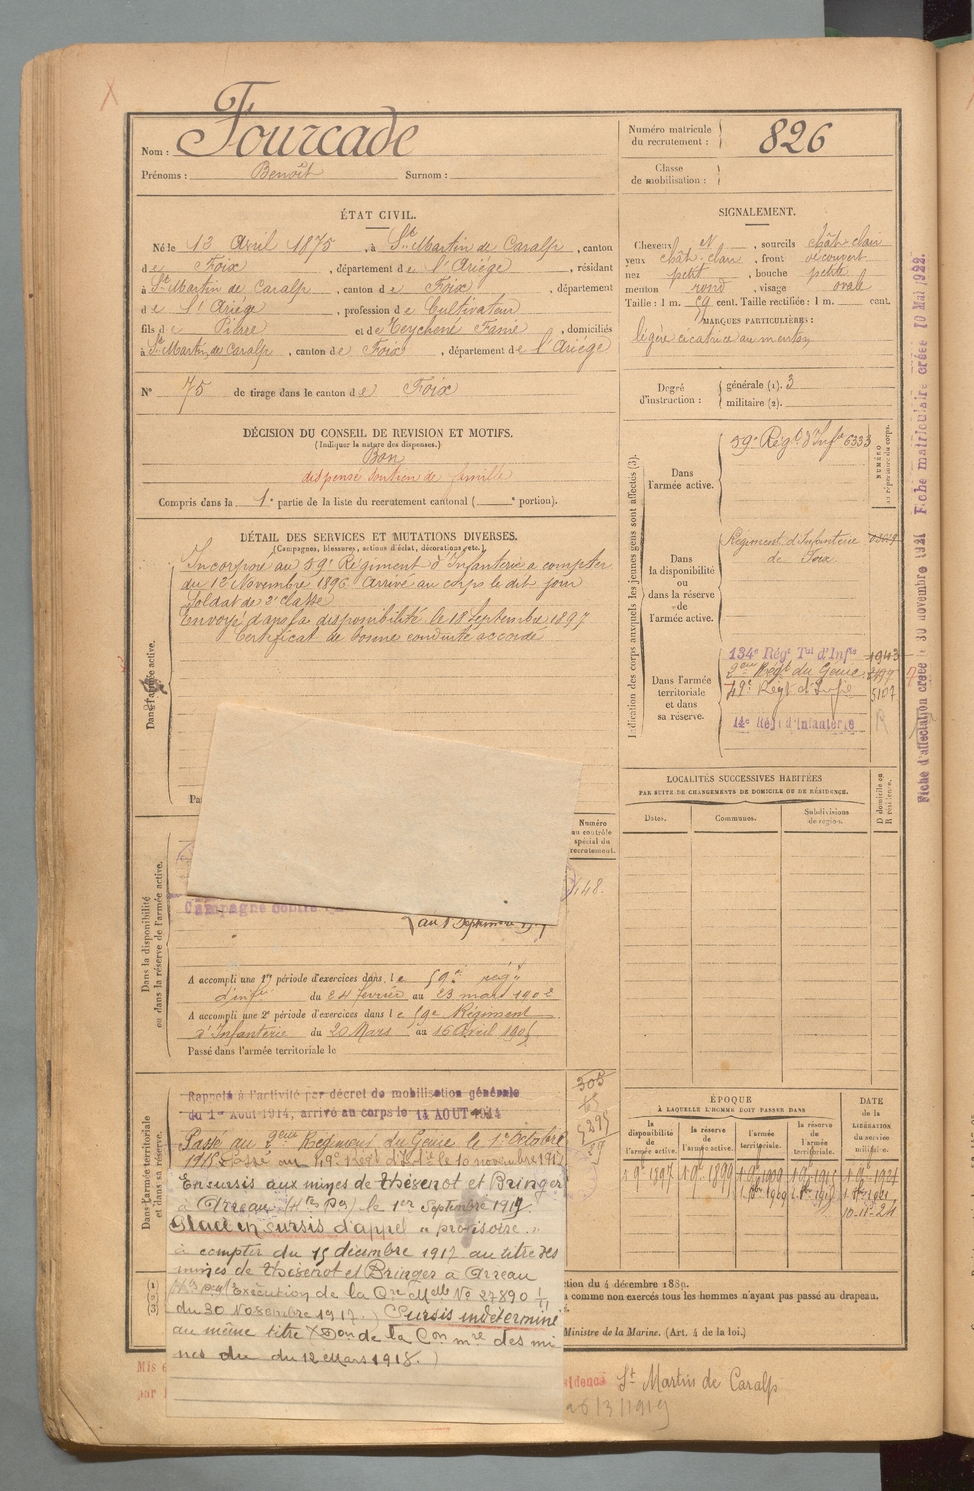 Nom : Fourcade
Prénoms : Benoît Surnom :
Numéro matricule
du recrutement : 826
Classe
de mobilisation :
ÉTAT CIVIL.
Né le 13 Avril 1875, à St Martin de Caralp, canton
de Foix, département de l'Ariége, résidant
à St Martin de Caralp, canton de Foix, département
de l'Ariége, profession de Cultivateur
fils de Pierre et de Teychené Fanie, domiciliés
à St Martin de Caralp, canton de Foix, département de l'Ariége
N° 75 de tirage dans le canton de Foix
DÉCISION DU CONSEIL DE REVISION ET MOTIFS.
(Indiquer la nature des dispenses.)
Bon
dispensé soutien de famille
Compris dans la 1e partie de la liste du recrutement cantonal ( e portion).
SIGNALEMENT.
Cheveux N, sourcils chât. clair
yeux chât. clair, front découvert
nez petit, bouche petite
menton rond, visage ovale
Taille : 1 m. 59 cent. Taille rectifiée : 1 m. cent.
MARQUES PARTICULIÈRES :
légère cicatrice au menton
Degré
d'instruction :
générale (1). 3
militaire (2).
DÉTAIL DES SERVICES ET MUTATIONS DIVERSES.
(Campagnes, blessures, actions d'éclat, décorations, etc.)
Dans l'armée active.
Incorporé au 59e Régiment d'Infanterie à compter
du 12 Novembre 1896. Arrivé au corps le dit jour
Soldat de 2e classe
Envoyé dans la disponibilité le 18 Septembre 1897
Certificat de bonne conduite accordé
Pa
Numéro
au contrôle
spécial du
recrutement.
148.
Dans la disponibilité
ou dans la réserve de l'armée active.
Campagne contre
au 1 Septembre
A accompli une 1re période d'exercices dans le 59e régt
d'infie du 24 février au 23 mars 1902
A accompli une 2e période d'exercices dans le 59e Régiment
d'Infanterie du 20 Mars au 16 Avril 1905
Passé dans l'armée territoriale le
Dans l'armée territoriale
et dans sa réserve.
Rappelé à l'activité par décret de mobilisation générale
du 1er Août 1914, arrivé au corps le 14 AOUT 1914
Passé au 2eme Régiment du Génie le 1er Octobre
1915. Passé au 49e Régt d'Infie le 10 novembre 1917
En sursis aux mines de thésenot et Bringer
à Arreau (Htes Pes) le 1er Septembre 1917.
Placé en sursis d'appel "provisoire"
à compter du 15 décembre 1917 au titre des
mines de thésenot et Bringer à Arreau
Exécution de la Ore Melle No 27890 1/11
du 30 Novembre 1917.) Sursis indéterminé
au même titre (Don de la Con mre des mi
nes du du 12 Mars 1918.)
(1)
(2)
(3)
ction du 4 décembre 1889.
a comme non exercés tous les hommes n'ayant pas passé au drapeau.
Ministre de la Marine. (Art. 4 de la loi.)
Mis e
par
sidence St Martin de Caralp
6/3/1919
Indication des corps auxquels les jeunes gens sont affectés (3).
Dans
l'armée active.
59e Régt d'Infie 6333
NUMÉRO
au répertoire du corps.
Dans
la disponibilité
ou
dans la réserve
de
l'armée active.
Régiment d'Infanterie
de Foix
Dans l'armée
territoriale
et dans
sa réserve.
134e Régt Tal d'Infie 1943
2eme Régt du Génie
49e Régt d'Infie 5107
14e Régt d'Infanterie R
LOCALITÉS SUCCESSIVES HABITÉES
PAR SUITE DE CHANGEMENTS DE DOMICILE OU DE RÉSIDENCE.
Dates.
Communes.
Subdivisions
de région.
D domicile ou
R résidence.
ÉPOQUE
À LAQUELLE L'HOMME DOIT PASSER DANS
la
disponibilité
de
l'armée active.
la réserve
de
l'armée active.
l'armée
territoriale.
la réserve
de
l'armée
territoriale.
DATE
de la
LIBÉRATION
du service
militaire.
1 9e 1897 1 9e 1899 1 9e 1909 1 9e 1915 1 9e 1921
10-11-24
Fiche d'affectation créée le 30 novembre 1921 Fiche matriculaire créée 10 Mai 1922.